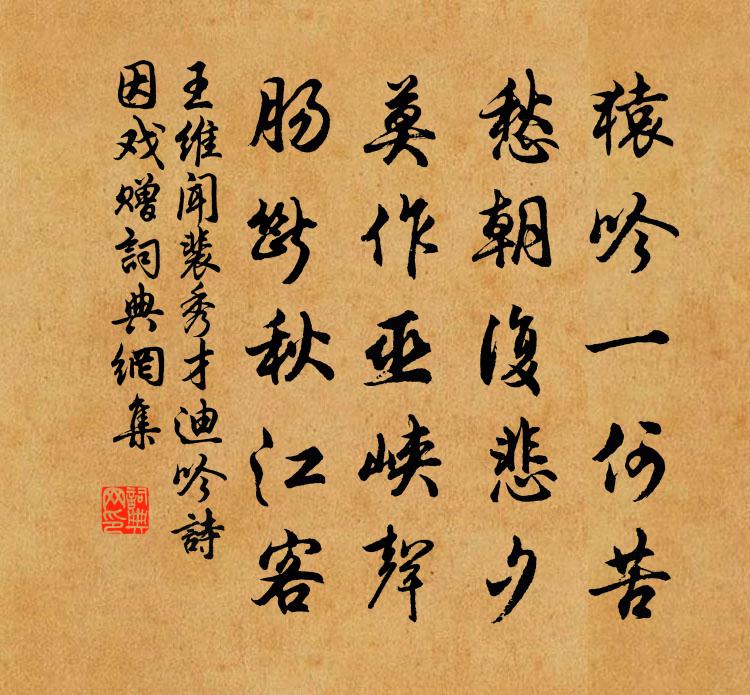 猿吟一何苦
愁朝復悲夕
莫作巫峽聲
腸斷秋江客
王維聞裴秀才迪吟詩
因戏赠詞典網集
詞典网印